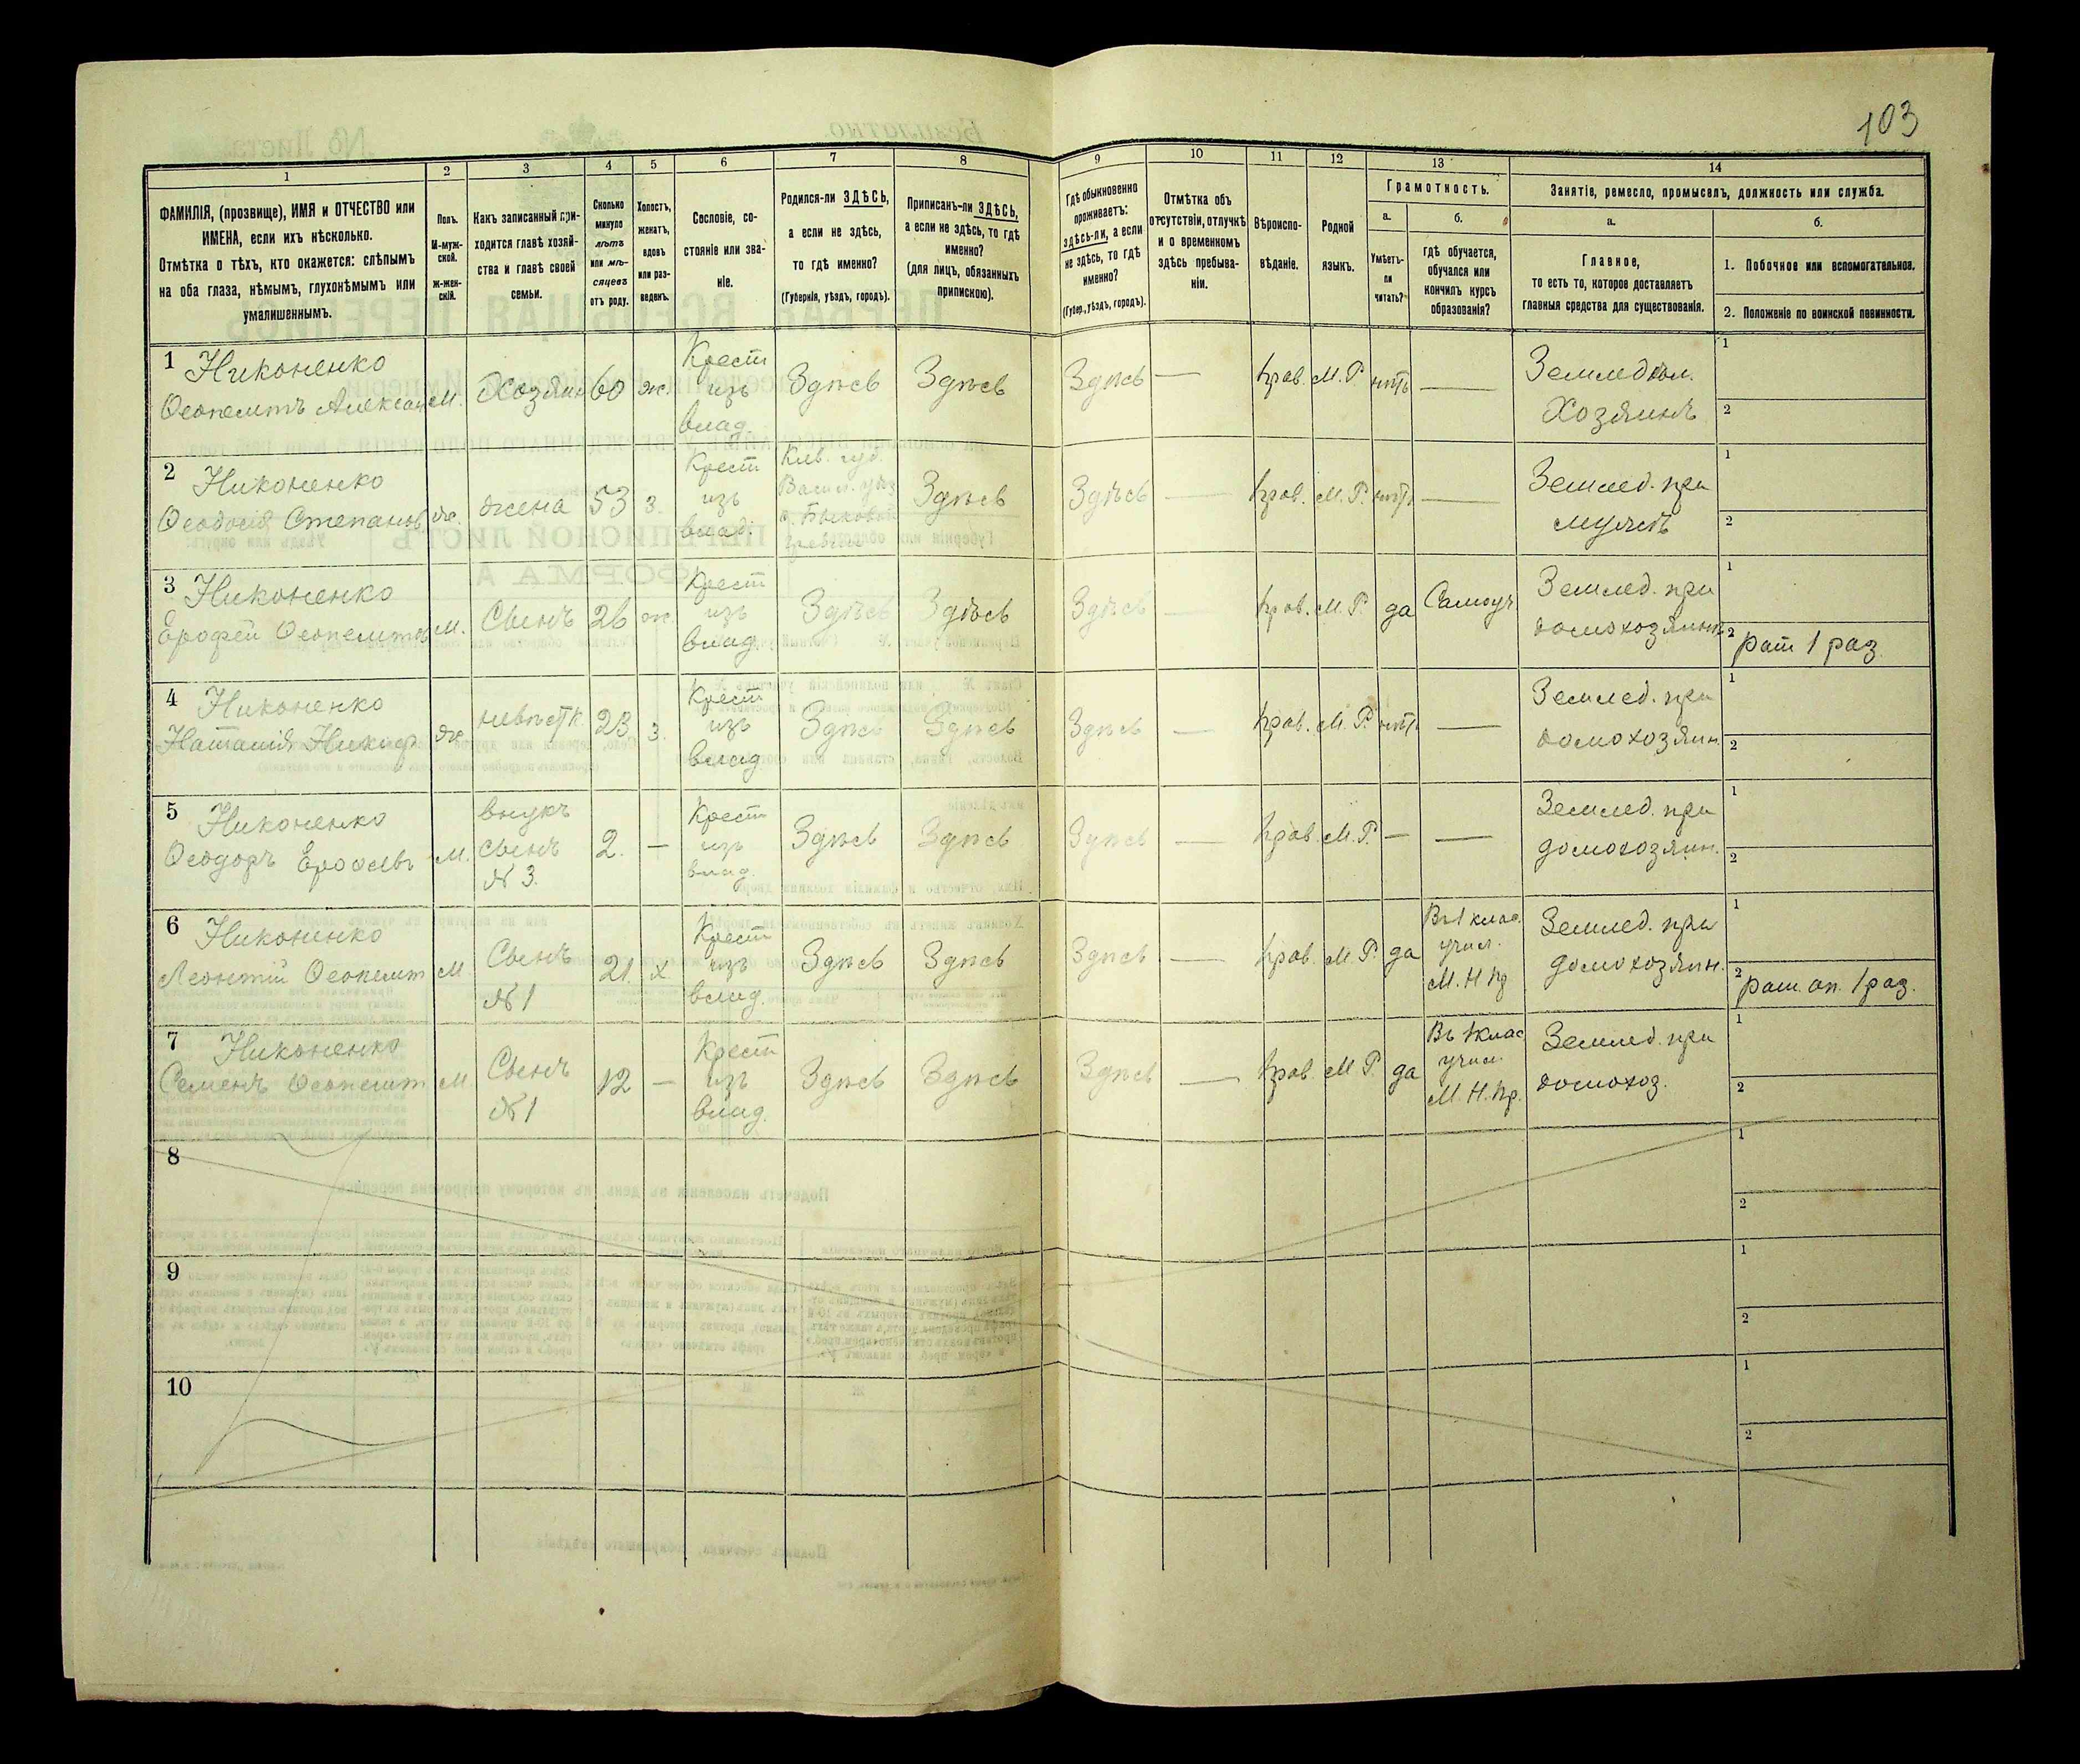 103
1
2
3
4
5
6
7
8
9
10
11
12
13
14
ФАМИЛІЯ, (прозвище), ИМЯ и ОТЧЕСТВО или
ИМЕНА, если ихъ нѣсколько.
Отмѣтка о тѣхъ, кто окажется: слѣпымъ
на оба глаза, нѣмымъ, глухонѣмымъ или
умалишеннымъ.
Полъ.
М-муж-
ской.
ж-жен-
скій.
Какъ записанный при-
ходится главѣ хозяй-
ства и главѣ своей
семьи.
Сколько
минуло
лѣтъ
или мѣ-
сяцевъ
отъ роду.
Холостъ,
женатъ,
вдовъ
или раз-
веденъ.
Сословіе, со-
стояніе или зва-
ніе.
Родился-ли ЗДѢСЬ,
а если не здѣсь,
то гдѣ именно?
(Губернія, уѣздъ, городъ).
Приписанъ-ли ЗДѢСЬ,
а если не здѣсь, то гдѣ
именно?
(для лицъ, обязанныхъ
припискою).
Гдѣ обыкновенно
проживаетъ:
здѣсь-ли, а если
не здѣсь, то гдѣ
именно?
(Губер., уѣздъ, городъ).
Отмѣтка объ
отсутствіи, отлучкѣ
и о временномъ
здѣсь пребыва-
ніи.
Вѣроиспо-
вѣданіе.
Родной
языкъ.
Грамотность.
а.
б.
Умѣетъ-
ли
читать?
гдѣ обучается,
обучался или
кончилъ курсъ
образованія?
Занятіе, ремесло, промыселъ, должность или служба.
а.
б.
Главное,
то есть то, которое доставляетъ
главныя средства для существованія.
1. Побочное или вспомогательное.
2. Положеніе по воинской повинности.
1 Никоненко
Ѳеопемтъ Алексан М. Хозяин 60 ж. Крест изъ влад. Здѣсь Здѣсь Здѣсь — прав. М.Р. нѣтъ — Земледѣл. Хозяинъ 1 2
2 Никоненко
Ѳеодосія Степанов ж. жена 53 з. Крест изъ влад. Кіев. губ. Здѣсь Здѣсь — прав. М.Р. нѣтъ — Землед. при мужѣ 1 2
3 Никоненко
Ерофей Ѳеопемтов М. Сынъ 26 ж. Крест изъ влад. Здѣсь Здѣсь Здѣсь — прав. М.Р. да Самоуч Землед. при домохозяинѣ 1 2 рат 1 раз.
4 Никоненко
Наталія Никиф ж. невѣстк. 23 з. Крест изъ влад. Здѣсь Здѣсь Здѣсь — прав. М.Р. нѣтъ — Землед. при домохозяин. 1 2
5 Никоненко
Ѳеодоръ Ерофеевъ М. внукъ сынъ № 3. 2. — Крест изъ влад. Здѣсь Здѣсь Здѣсь — прав. М.Р. — — Землед. при домохозяин. 1 2
6 Никоненко
Леонтій Ѳеопемт М Сынъ № 1 21. х Крест изъ влад. Здѣсь Здѣсь Здѣсь — прав. М.Р. да Въ 1 клас. учил. М.Н.пр Землед. при домохозяин. 1 2 рат. оп. 1 раз.
7 Никоненко
Семенъ Ѳеопемт М Сынъ № 1 12 — Крест изъ влад. Здѣсь Здѣсь Здѣсь — прав. М.Р. да Въ 1 клас учил. М.Н.пр. Землед. при домохоз. 1 2
8 1 2
9 1 2
10 1 2